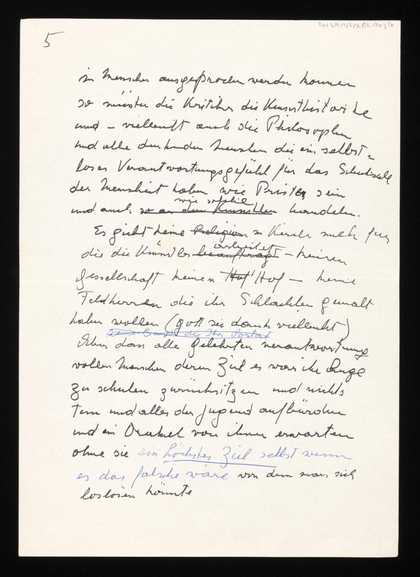 5
in Menschen ausgesprochen werden können
so müssten die Kritiker die Kunsthistoriker
und – vielleicht auch die Philosophen
und alle denkenden Menschen die ein selbst-
loses Verantwortungsgefühl für das Schicksal
der Menschheit haben wie Priester sein
mir
und auch so an den Künstler handeln.
Es giebt keine Religion Kirche mehr für
arbeitet
die die Künstler beauftragt – keinen
Gesellschaft keinen Hof Hof – keine
Feldherren die ihr Schlachten gemalt
haben wollen (gott sei dank vielleicht)
Eben dass alle Gelehrten verantwortung
vollen Menschen deren Ziel es war ihr Auge
zu schulen zurücksitzen und nichts
tun und alles der Jugend aufbürden
und ein Orakel von ihnen erwarten
ohne sie ein höchstes Ziel selbst wenn
es das falsche wäre von dem man sich
loslösen könnte